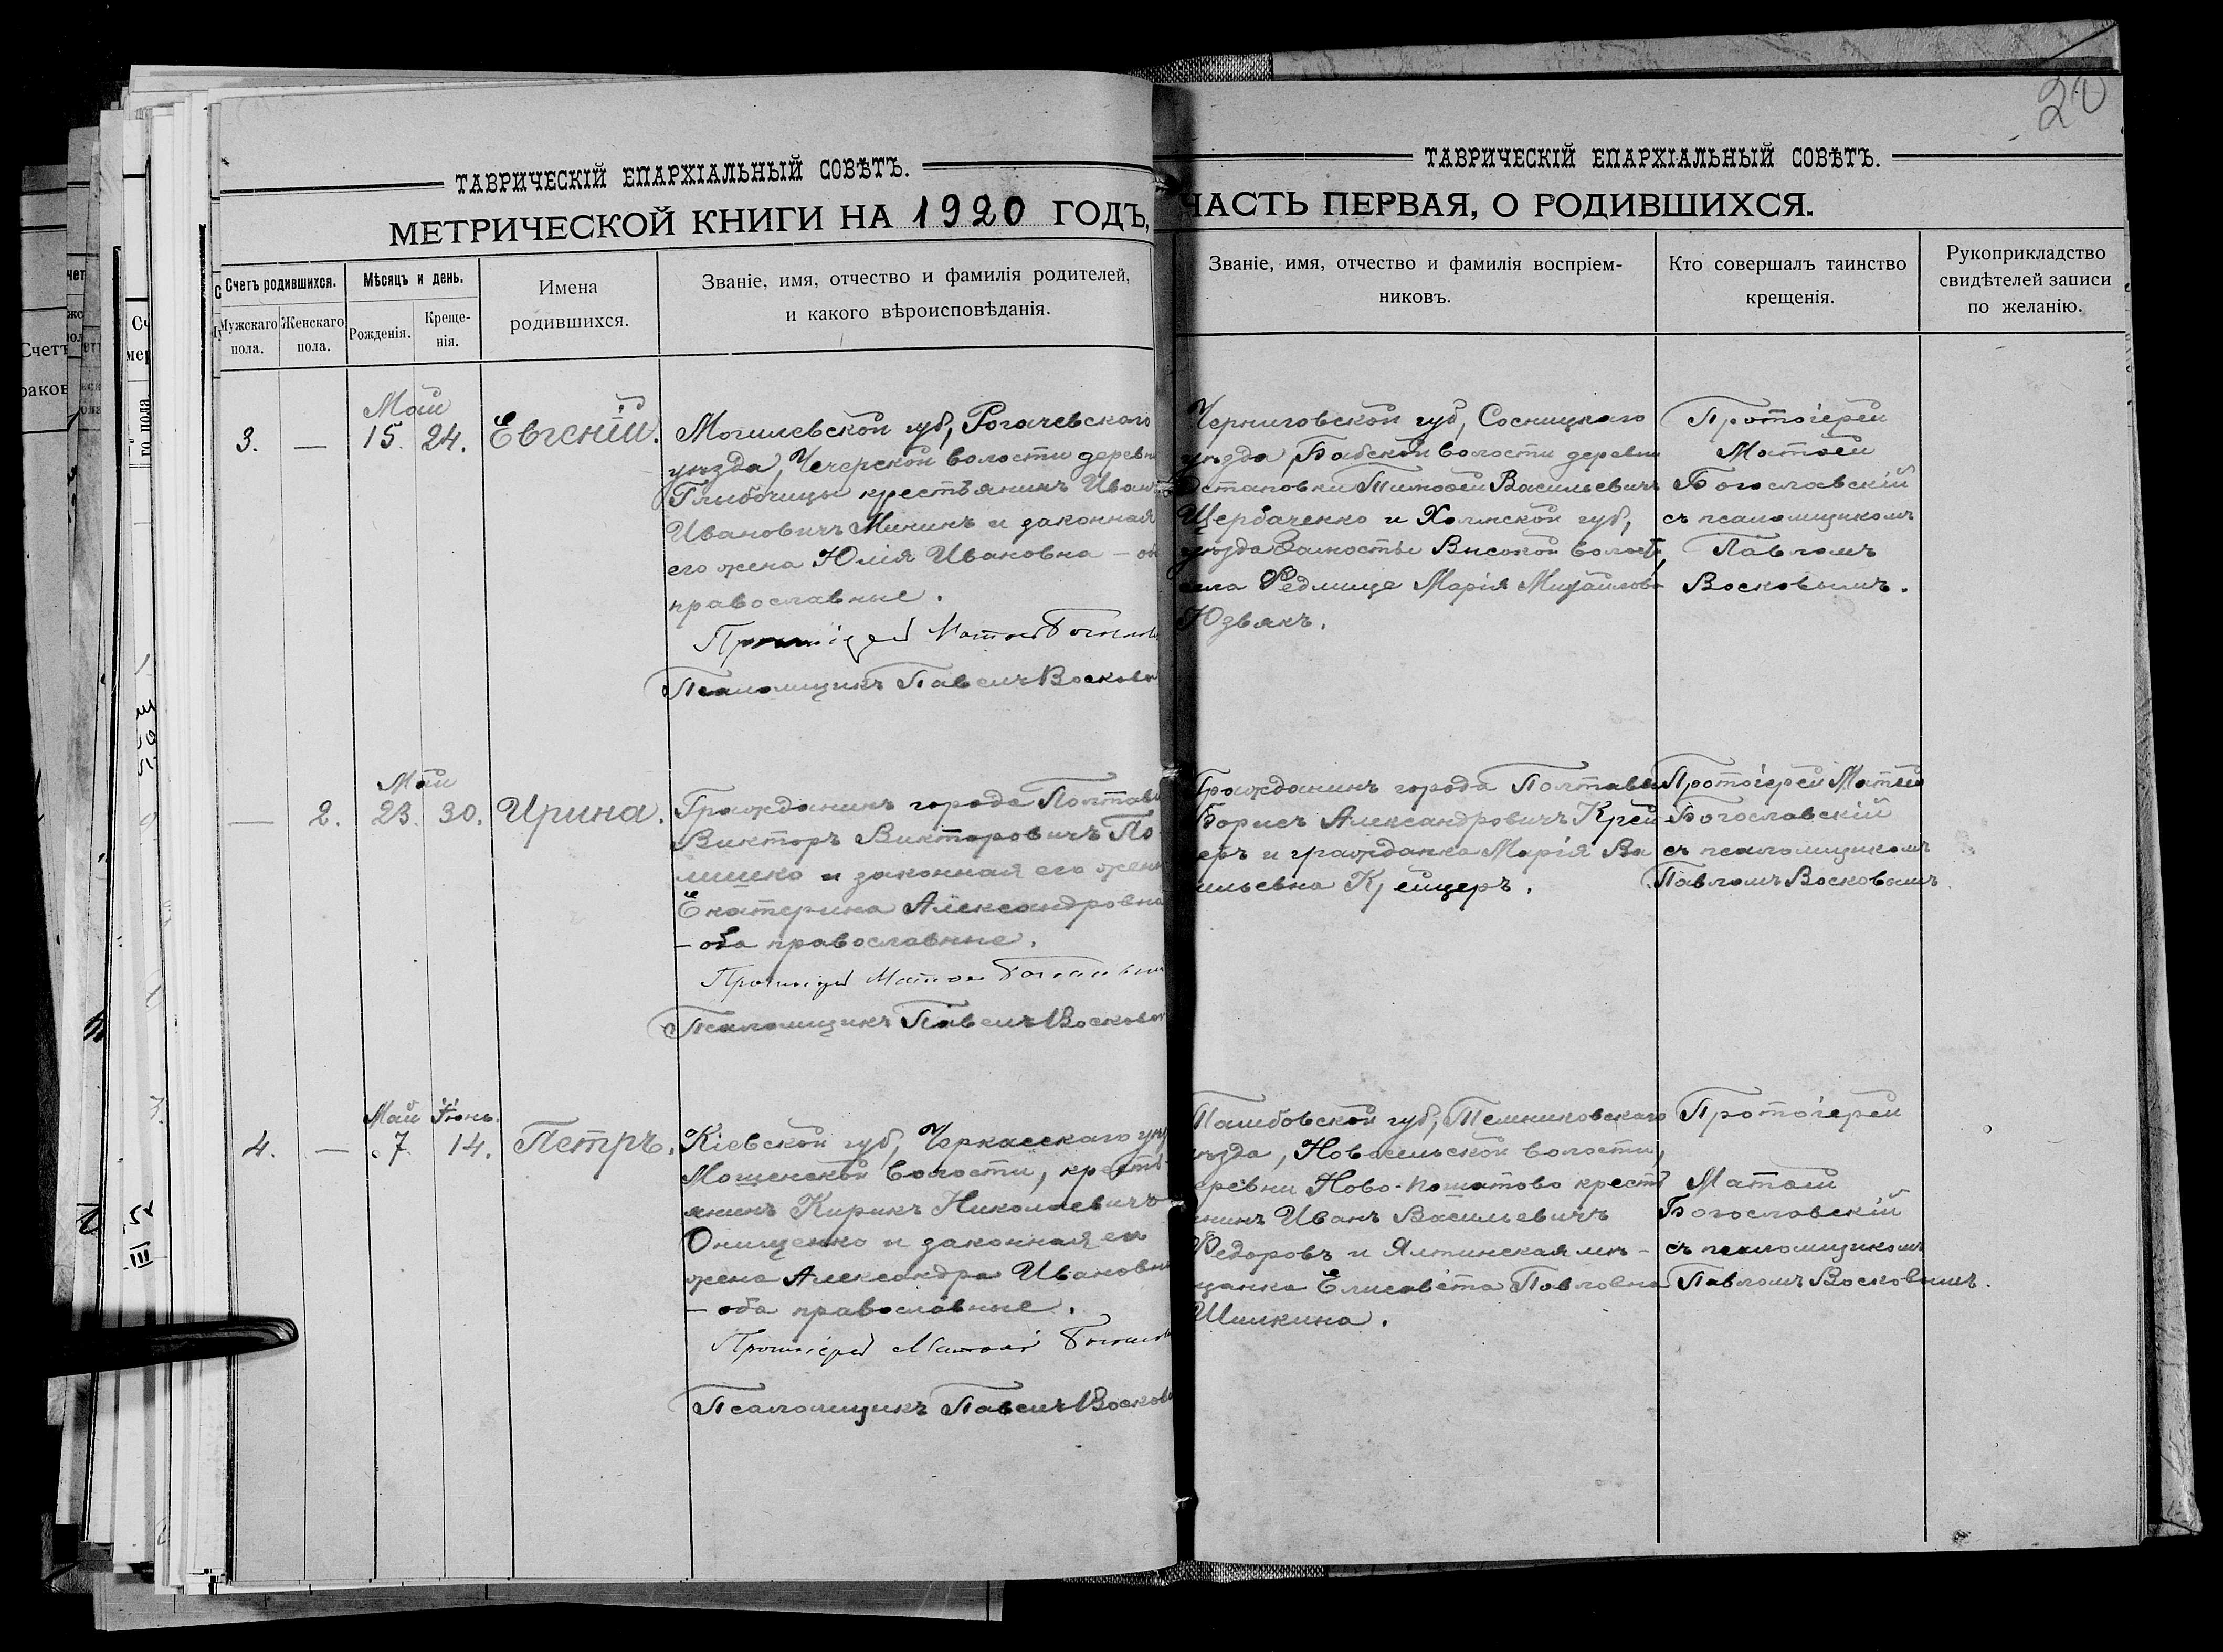 20
ТАВРИЧЕСКІЙ ЕПАРХІАЛЬНЫЙ СОВѢТЪ.
МЕТРИЧЕСКОЙ КНИГИ НА 1920 ГОДЪ,
Счетъ родившихся.
Мужскаго пола.
Женскаго пола.
Мѣсяцъ и день.
Рожденія.
Креще-
нія.
Имена
родившихся.
Званіе, имя, отчество и фамилія родителей,
и какого вѣроисповѣданія.
ТАВРИЧЕСКІЙ ЕПАРХІАЛЬНЫЙ СОВѢТЪ.
ЧАСТЬ ПЕРВАЯ, О РОДИВШИХСЯ.
Званіе, имя, отчество и фамилія воспріем-
никовъ.
Кто совершалъ таинство
крещенія.
Рукоприкладство
свидѣтелей записи
по желанію.
Май
3. — 15. 24. Евгеній.
Могилевской губ, Рогачевскаго
уѣзда, Чечерской волости деревн
Глыбочицы крестьянинъ Иван
Ивановичъ Мининъ и законная
его жена Юлія Ивановна — об
православные.
Протоіерей Матѳей Богослов
Псаломщикъ Павелъ Восков
Черниговской губ, Сосницкаго
уѣзда, Бабской волости деревни
Тимоѳей Васильевичъ
Щербаченко и Холмской губ,
уѣзда Замостье Высокой волост,
села Редлище Марія Михайлов
Юзвякъ.
Протоіерей
Матѳей
Богославскій
съ псаломщикомъ
Павломъ
Восковымъ.
Май
— 2. 23. 30. Ирина.
Гражданинъ города Полтав
Викторъ Викторовичъ По
лишко и законная его жен
Екатерина Александровна
— оба православные.
Протоіерей Матѳей Богословск
Псаломщикъ Павелъ Восков
Гражданинъ города Полтавы
Борисъ Александровичъ Крей
еръ и гражданка Марія Ва
ильевна Крейцеръ.
Протоіерей Матѳей
Богославскій
съ псаломщикомъ
Павломъ Восковымъ.
Май Іюнь.
4. — 7. 14. Петръ.
Кіевской губ, Черкасскаго уѣ
Мошенской волости, кресть-
янинъ Кирикъ Николаевичъ
Онищенко и законная ею
жена Александра Ивановн
— оба православные.
Протоіерей Матѳей Богослов
Псаломщикъ Павелъ Восков
Тамбовской губ, Темниковскаго
ѣзда, Новосельской волости,
еревни Ново- крест
нинъ Иванъ Васильевичъ
Ѳедоровъ и Ялтинская мѣ-
щанка Елисавета Павловна
Шишкина.
Протоіерей
Матѳей
Богословскій
съ псаломщикомъ
Павломъ Восковымъ.